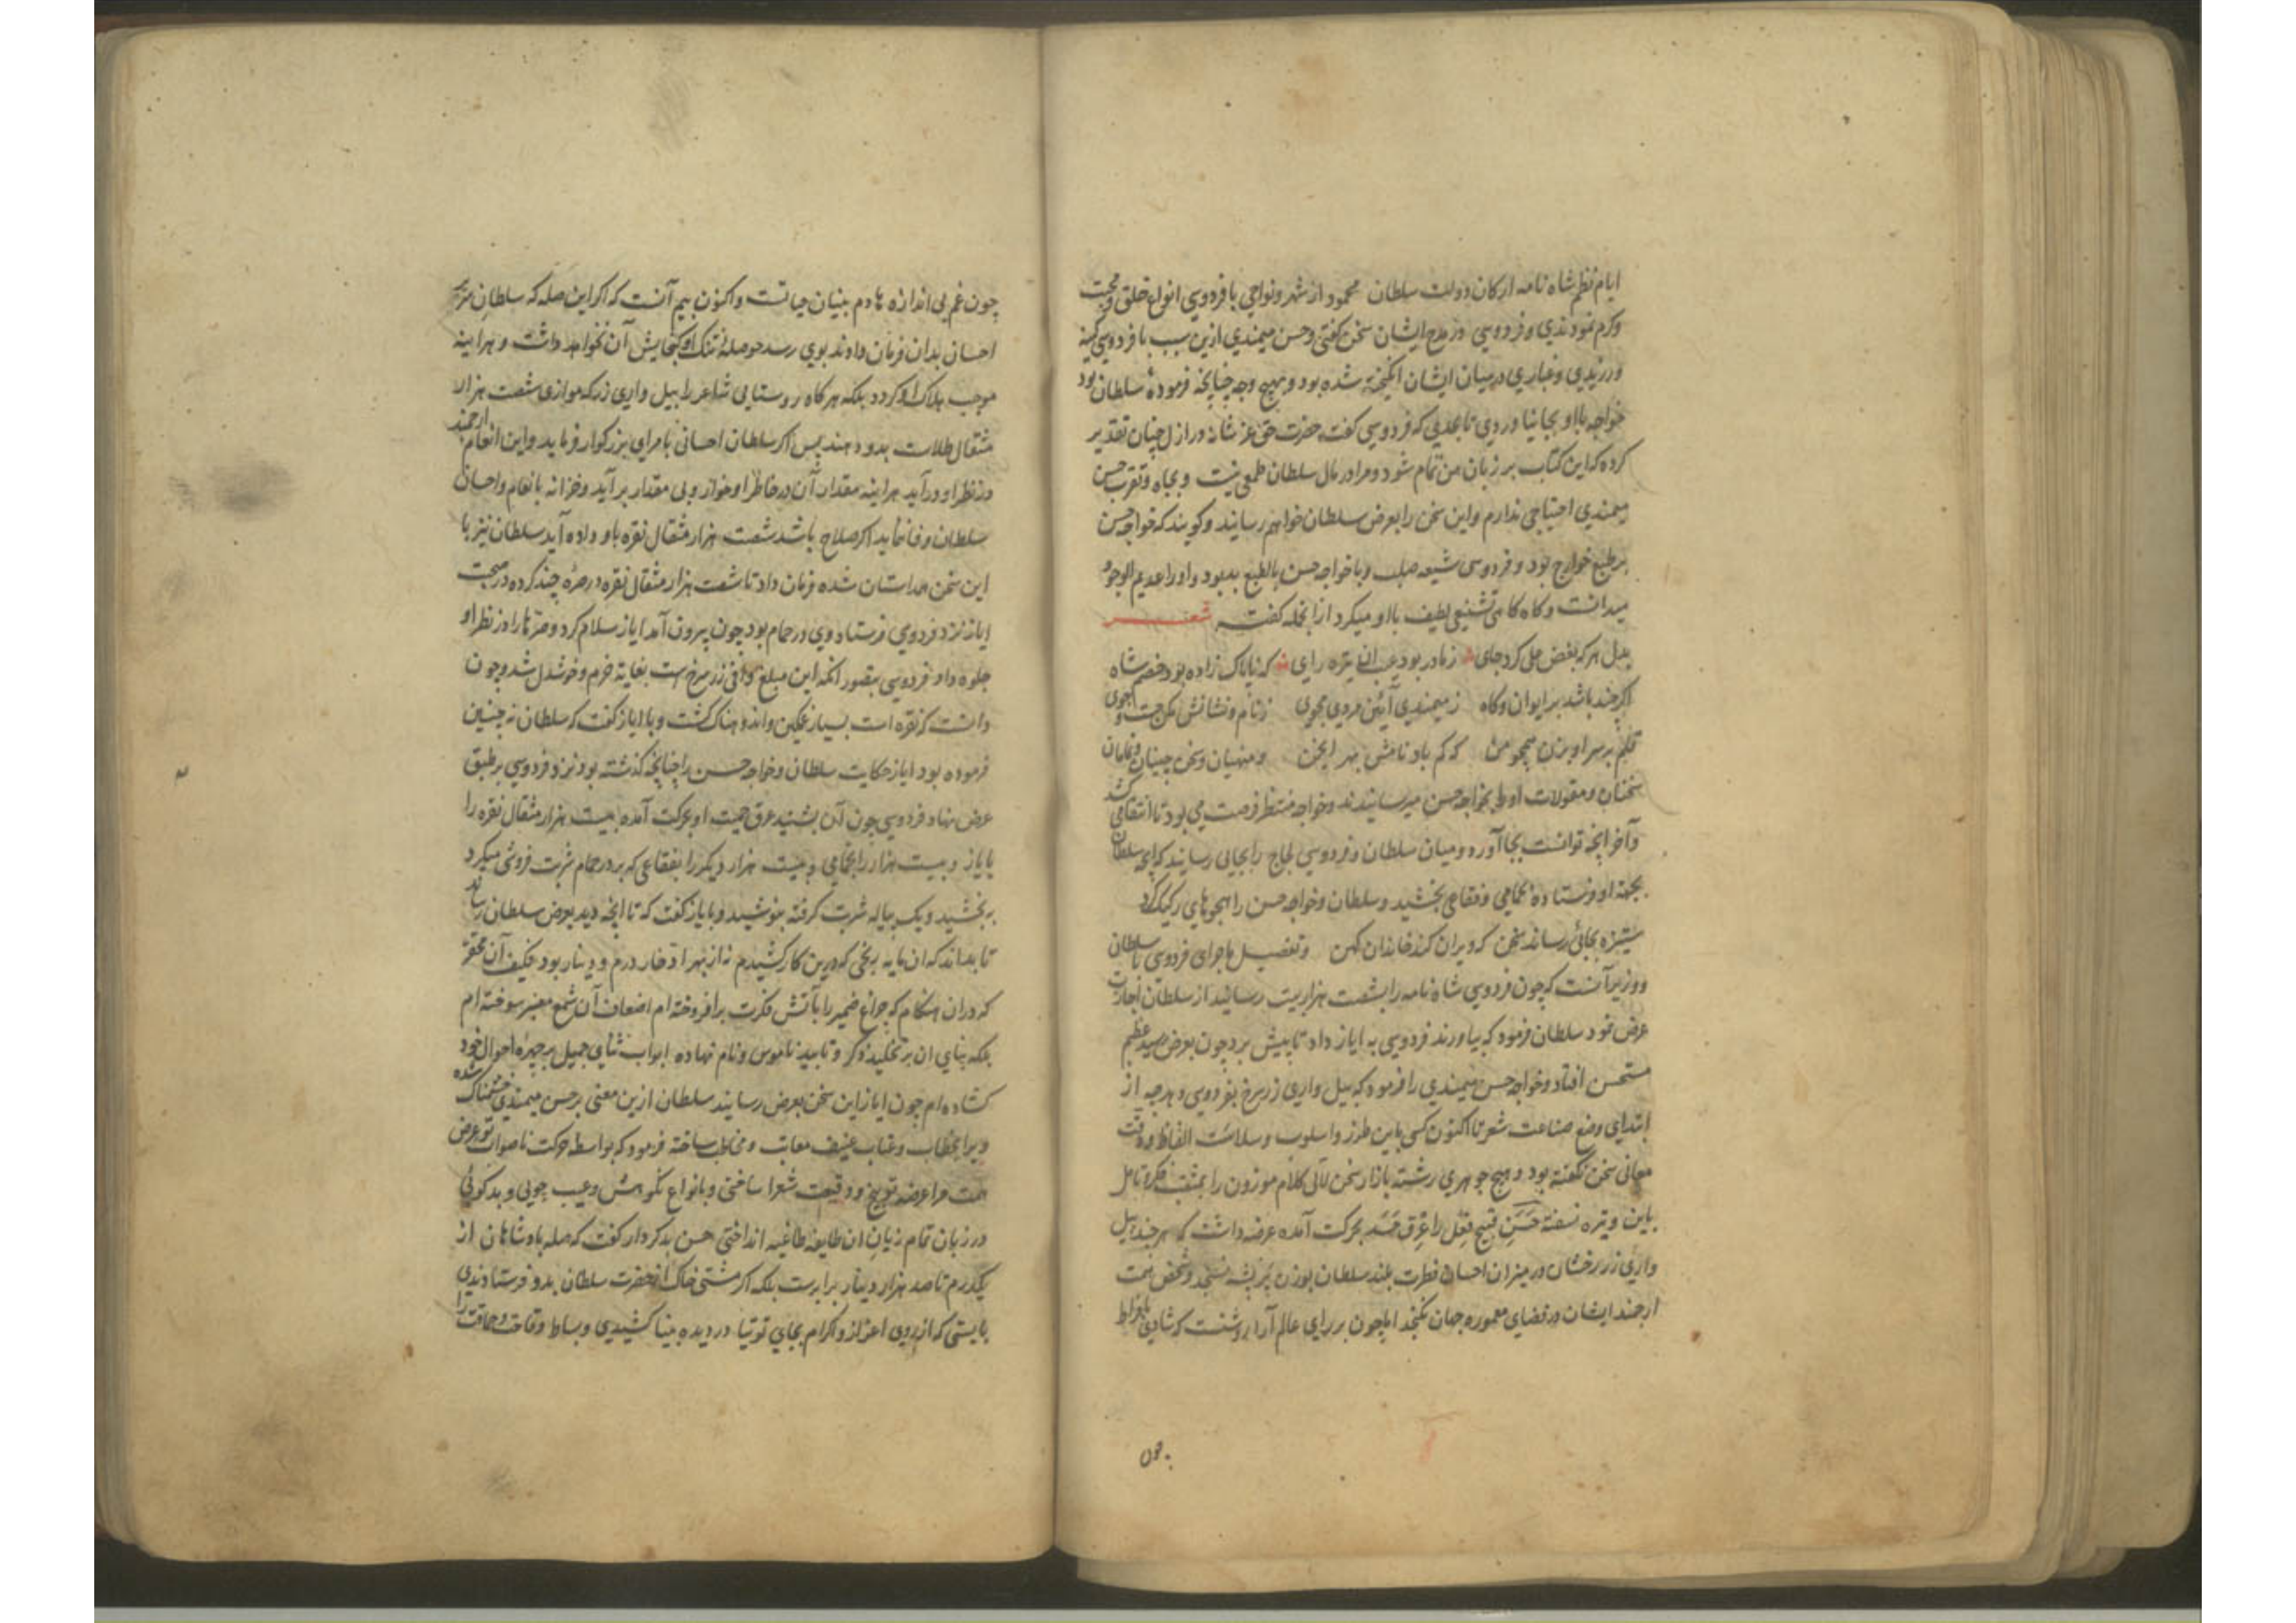 ایام نظم شاه نامه ارکان دولت سلطان محمود از شهر و نواحی با فردوسی انواع خلق و محبت
وکرم نمودندی و فردوسی در مدح ایشان سخن گفتی و حسن میمندی ازین سبب با فردوسی کینه
ورزیدی و غباری در میان ایشان انگیخته شده بود و بهیچ وجه چنانچه فرمودهٔ سلطان بود
خواجه با او بجا نیاوردی تا بحدی که فردوسی گفت حضرت حق عز شانه در ازل چنان تقدیر
کرده که این کتاب بر زبان من تمام شود و مرا در مال سلطان طمعی نیست و بجاه و تقرب حسن
میمندی احتیاجی ندارم و این سخن را بعرض سلطان خواهم رسانید و گویند که خواجه حسن
بر طبع خوارج بود و فردوسی شیعه صلب و با خواجه حسن بالطبع بد بود و او را عدیم الوجود
میدانست و گاه گاهی تشنیعی لطیف با او میکرد از انجمله گفته شعر
بدل هر که بغض علی کرد جای ز مادر بود عیب ان تیره رای که ناپاک زاده بود خصم شاه
اگر چند باشد بر ایوان و گاه ز میمندی آئین مردی مجوی ز نام و نشانش مکن جست و جوی
قلم بر سر او بزن همچو من که گم باد نامش بهر انجمن و منهیان و سخن چینان و نمامان
سخنان و مقولات او را بخواجه حسن میرسانیدند و خواجه منتظر فرصت می بود تا انتقامی کشد
و آخر انچه توانست بجا آورد و میان سلطان و فردوسی لجاج را بجایی رسانید که انچه سلطان
بجهة او فرستاده بحمامی و فقاعی بخشید و سلطان و خواجه حسن را هجوهای رکیک کرد
ستیزه بجائی رساند سخن که ویران کند خاندان کهن و تفصیل ماجرای فردوسی با سلطان
و وزیر آنست که چون فردوسی شاه نامه را بشصت هزار بیت رسانید از سلطان اجازت
عرض نمود سلطان فرمود که بیاورند فردوسی به ایاز داد تا پیش برد چون بعرض رسید عظیم
مستحسن افتاد و خواجه حسن میمندی را فرمود که پیل واری زر سرخ بفردوسی دهد چه از
ابتدای وضع صناعت شعر تا اکنون کسی باین طرز و اسلوب و سلاست الفاظ و دقت
معانی سخن نگفته بود و هیچ جوهری رشته بازار سخن لآلی کلام موزون را بمثقب فکر و تامل
باین وتیره نسفته حسن قبیح فعل را عرق حسد بحرکت آمده عرضه داشت که هر چند پیل
واری زر رخشان در میزان احسان فطرت بلند سلطان بوزن پر پشه نسنجد و شخص همت
ارجمند ایشان در فضای معموره جهان نگنجد اما چون بر رای عالم آرا روشنست که شادی بافراط
چون
چون غم بی اندازه هادم بنیان حیاتست و اکنون بیم آنست که اگر این صله که سلطان از سر
احسان بدان فرمان دادند بوی رسد حوصله تنک او گنجایش آن نخواهد داشت و هر آینه
موجب هلاک او گردد بلکه هر گاه روستایی شاعر را پیل واری زر که موازی شصت هزار
مثقال طلاست بدو دهند پس اگر سلطان احسانی بامرای بزرگوار فرماید و این انعام ارجمند
در نظر او درآید هر اینه مقدار آن در خاطر او خوار و بی مقدار برآید و خزانه بانعام و احسان
سلطان وفا ننماید اگر صلاح باشد شصت هزار مثقال نقره باو داده آید سلطان نیز با
این سخن همداستان شده فرمان داد تا شصت هزار مثقال نقره در صره چند کرده در صحبت
ایاز نزد فردوسی فرستاد وی در حمام بود چون بیرون آمد ایاز سلام کرد و صرّها را در نظر او
جلوه داد فردوسی بتصور انکه این مبلغ وافی زر سرخ است بغایة خرم و خوشدل شد و چون
دانست که نقره است بسیار غمگین و اندوهناک گشت و با ایاز گفت که سلطان نه چنین
فرموده بود ایاز حکایت سلطان و خواجه حسن را چنانچه گذشته بود نزد فردوسی بر طبق
عرض نهاد فردوسی چون آن بشنید عرق حمیت او بحرکت آمده بیست هزار مثقال نقره را
بایاز و بیست هزار را بحمامی و بیست هزار دیگر را بفقاعی که بر در حمام شربت فروشی میکرد
ببخشید و یک پیاله شربت گرفته بنوشید و بایاز گفت که تا انچه دید بعرض سلطان رساند
تا بداند که ان مایه رنجی که درین کار کشیدم نه از بهر ادخار درم و دینار بود فکیف آن محقر
که در ان هنگام که چراغ ضمیر را بآتش فکرت برافروخته ام اضعاف آن شمع معنبر سوخته ام
بلکه بنای ان بر تخلید ذکر و تایید ناموس و نام نهاده ابواب ثنای جمیل بر چهرهٔ احوال خود
گشاده ام چون ایاز این سخن بعرض رسانید سلطان ازین معنی بر حسن میمندی خشمناک شده
ویرا بخطاب و عتاب عنیف معاتب و مخاطب ساخته فرمود که بواسطه حرکت ناصواب تو عرض
همت مرا عرضه توبیخ و وقیعت شعرا ساختی و بانواع نکوهش و عیب جویی و بدگوئی
در زبان تمام زیان ان طایفه طاغیه انداختی حسن بدکردار گفت که صله پادشاهان از
یکدرم تا صد هزار دینار برابرست بلکه اگر مشتی خاک از حضرت سلطان بدو فرستادندی
بایستی که از روی اعزاز و اکرام بجای توتیا در دیده بینا کشیدی و بساط وقاحت و حماقت را